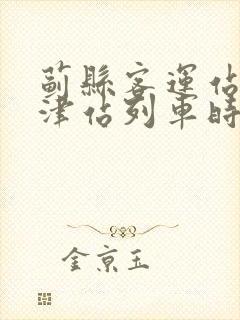 蓟縣客運佔
津佔列車時
金京玉